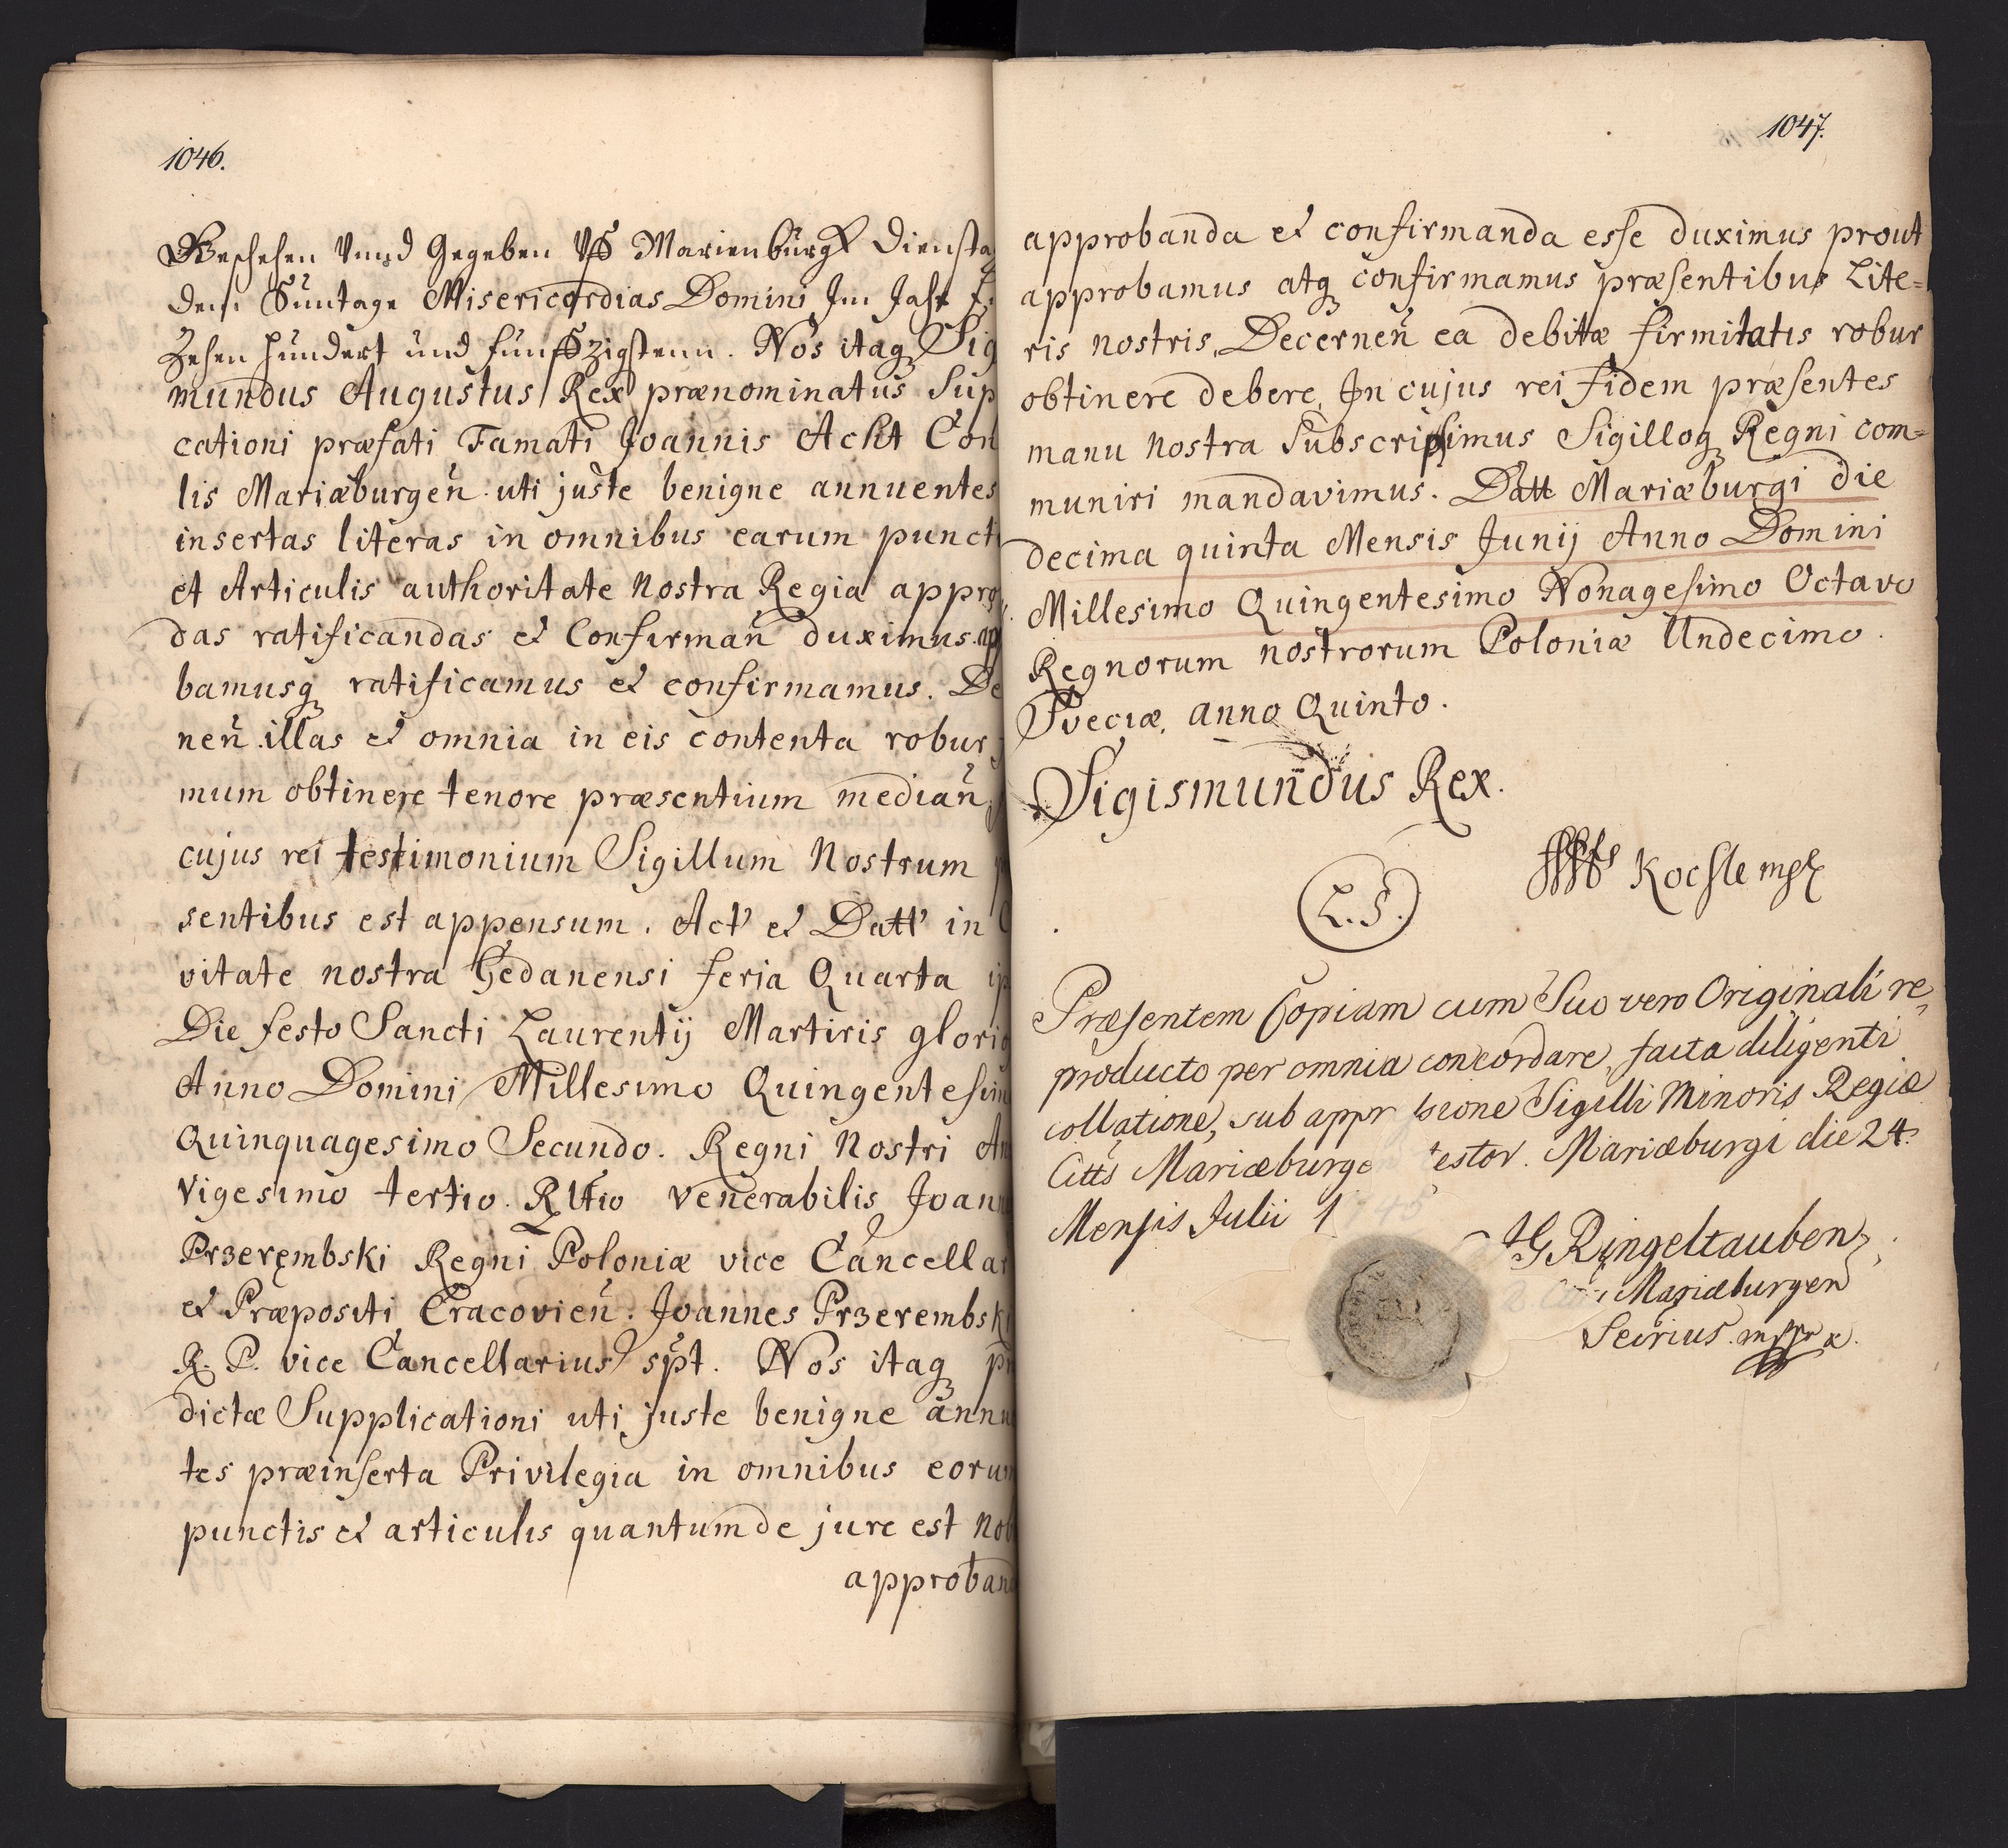 1046.
Geschehen Vnnd Gegeben Marienburgk
dem Suntage Misericordias Domini Im Jahr
Zehen hundert und funffzigstenn. Nos itaq Sig
mundus Augustus Rex prænominatus Sup
cationi præfati Famati Joannis Acht Con
lis Mariæburgen̄ uti juste benigne annuentes
insertas literas in omnibus earum punct
et Articulis authoritate Nostra Regia appro
das ratificandas et Confirman̄ duximus ap
bamusq ratificamus et confirmamus. De
nen̄ illas et omnia in eis contenta robur
mum obtinere tenore præsentium median̄
cujus rei testimonium Sigillum Nostrum
sentibus est appensum. Act et Datt in C
vitate nostra Gedanensi feria Quarta ip
Die festo Sancti Laurentij Martiris glorio
Anno Domini Millesimo Quingentesim
Quinquagesimo Secundo. Regni Nostri An
Vigesimo tertio. Venerabilis Joann
Przerębski Regni Poloniæ vice Cancellar
et Præpositi Cracovien̄. Joannes Przerembski
R. P. vice Cancellarius spt. Nos itaq pr
dictæ Supplicationi uti juste benigne annu
tes præinserta Privilegia in omnibus eorum
punctis et articulis quantum de jure est Nob
approband
1047.
approbanda et confirmanda esse duximus prout
approbamus atq confirmamus præsentibus Lite=
ris nostris, Decernen̄ ea debitæ firmitatis robur
obtinere debere, In cujus rei fidem præsentes
manu nostra Subscripsimus Sigilloq Regni com=
muniri mandavimus. Datt Mariæburgi die
decima quinta Mensis Junij Anno Domini
Millesimo Quingentesimo Nonagesimo Octavo
Regnorum nostrorum Poloniæ Undecimo.
Sveciæ, anno Quinto.
Sigismundus Rex.
L. S.
Præsentem Copiam cum Suo vero Originali re
producto per omnia concordare, facta diligenti
collatione, sub appr ssione Sigilli Minoris Regiæ
Citts Mariæburge testor. Mariæburgi die 24.
Mensis Julii 1
Ringeltauben
Mariæburgen
Secrius. mppr